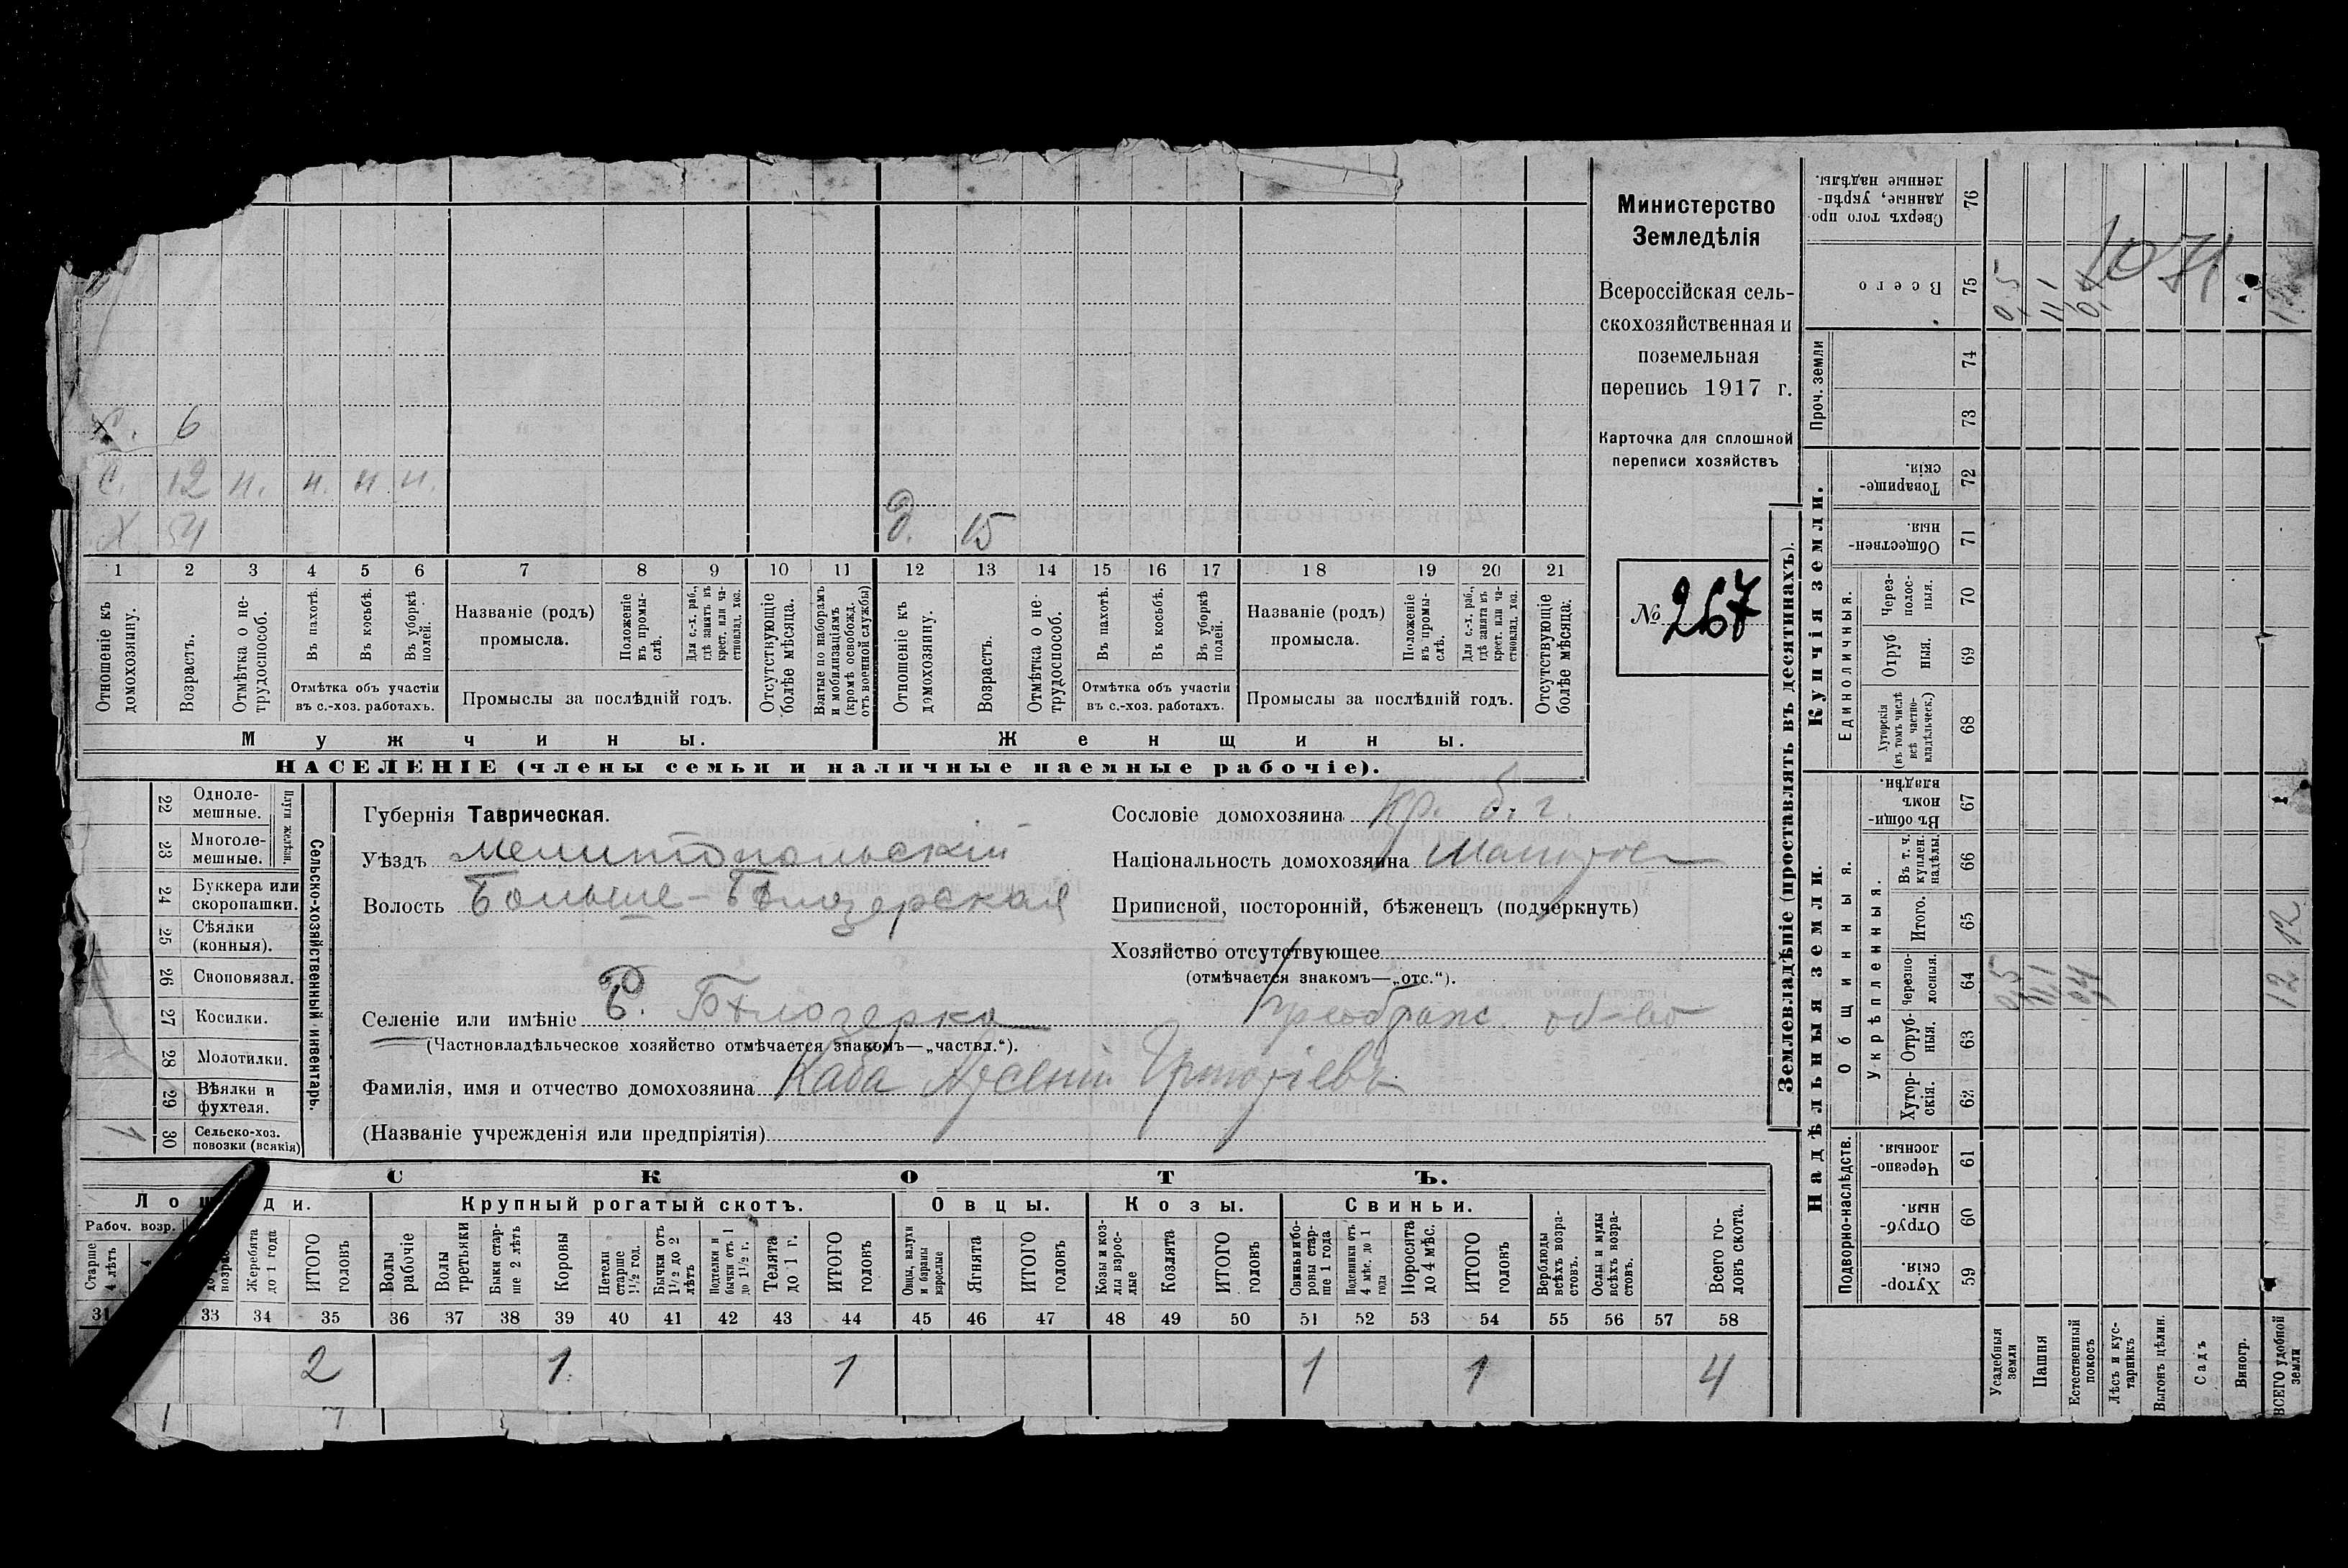 Министерство
Земледѣлія
Всероссійская сель-
скохозяйственная и
поземельная
перепись 1917 г.
Карточка для сплошной
переписи хозяйствъ
№ 267
6
С. 12 н. н. н. н.
Х
Д. 15
1 2 3 4 5 6 7 8 9 10 11 12 13 14 15 16 17 18 19 20 21
Отношеніе къ домохозяину.
Возрастъ.
Отмѣтка о не-трудоспособ.
Въ пахотѣ.
Въ косьбѣ.
Въ уборкѣ полей.
Отмѣтка объ участіи
въ с.-хоз. работахъ.
Названіе (родъ)
промысла.
Положеніе въ промы-слѣ.
Для с.-х. раб., гдѣ занятъ въ крест. или ча-стновлад. хоз.
Промыслы за послѣдній годъ.
Отсутствующіе болѣе мѣсяца.
Взятые по наборамъ и мобилизаціямъ (кромѣ освобожд. отъ военной службы)
Отношеніе къ домохозяину.
Возрастъ.
Отмѣтка о не-трудоспособ.
Въ пахотѣ.
Въ косьбѣ.
Въ уборкѣ полей.
Отмѣтка объ участіи
въ с.-хоз. работахъ.
Названіе (родъ)
промысла.
Положеніе въ промы-слѣ.
Для с.-х. раб., гдѣ занята въ крест. или ча-стновлад. хоз.
Промыслы за послѣдній годъ.
Отсутствующіе болѣе мѣсяца.
Мужчины.
Женщины.
НАСЕЛЕНІЕ (члены семьи и наличные наемные рабочіе).
Сельско-хозяйственный инвентарь.
Плуги желѣзн.
22 Одноле-мешные.
23 Многоле-мешные.
24 Буккера или скоропашки.
25 Сѣялки (конныя).
26 Сноповязал.
27 Косилки.
28 Молотилки.
29 Вѣялки и фухтеля.
30 Сельско-хоз. повозки (всякія)
1
Губернія Таврическая.
Уѣздъ Мелитопольскій
Волость Больше-Бѣлозерская
Селеніе или имѣніе Б. Бѣлозерка Преображ. об-во
(Частновладѣльческое хозяйство отмѣчается знакомъ—„частвл.“).
Фамилія, имя и отчество домохозяина Каба Арсеній Григорiевъ
(Названіе учрежденія или предпріятія)
Сословіе домохозяина кр. б. г.
Національность домохозяина малорос
Приписной, посторонній, бѣженецъ (подчеркнуть)
Хозяйство отсутствующее
(отмѣчается знакомъ—„отс.“).
СКОТЪ.
Крупный рогатый скотъ.
Овцы.
Козы.
Свиньи.
Рабоч. возр.
Старше 4 лѣтъ
Жеребята до 1 года
ИТОГО головъ
Волы рабочіе
Волы третьяки
Быки стар-ше 2 лѣтъ
Коровы
Нетели старше 1½ год.
Бычки отъ 1½ до 2 лѣтъ
Подтелки и бычки отъ 1 до 1½ г.
Телята до 1 г.
ИТОГО головъ
Овцы, валухи и бараны взрослые
Ягнята
ИТОГО головъ
Козы и коз-лы взрос-лые
Козлята
ИТОГО головъ
Свиньи и бо-ровы стар-ше 1 года
Подсвинки отъ 4 мѣс. до 1 года
Поросята до 4 мѣс.
ИТОГО головъ
Верблюды всѣхъ возра-стовъ.
Ослы и мулы всѣхъ возра-стовъ.
Всего го-ловъ скота.
31 33 34 35 36 37 38 39 40 41 42 43 44 45 46 47 48 49 50 51 52 53 54 55 56 57 58
2 1 1 1 1 4
Землевладѣніе (проставлять въ десятинахъ).
Купчія земли.
Надѣльныя земли.
Сверхъ того про-данные, укрѣп-ленные надѣлы. 76
Всего 75
Проч. земли 74 73
Товарище-скія. 72
Обществен-ныя. 71
Единоличныя.
Через-полос-ныя. 70
Отруб-ныя. 69
Хуторскія (въ томъ числѣ всѣ частно-владѣльческ.) 68
Въ общи-номъ владѣн. 67
Общинныя.
Укрѣпленныя.
Въ т. ч. куплен. надѣлы. 66
Итого. 65
Черезпо-лосныя. 64
Отруб-ныя. 63
Хутор-скія. 62
Подворно-наслѣдств.
Черезпо-лосныя. 61
Отруб-ныя. 60
Хутор-скія. 59
Усадебныя земли 0,5 0,5
Пашня 11,1 11,1
Естественный покосъ 0,4 0,4
Лѣсъ и кус-тарникъ
Выгонъ цѣлин.
Садъ
Виногр.
ВСЕГО удобной земли 12 12
1071